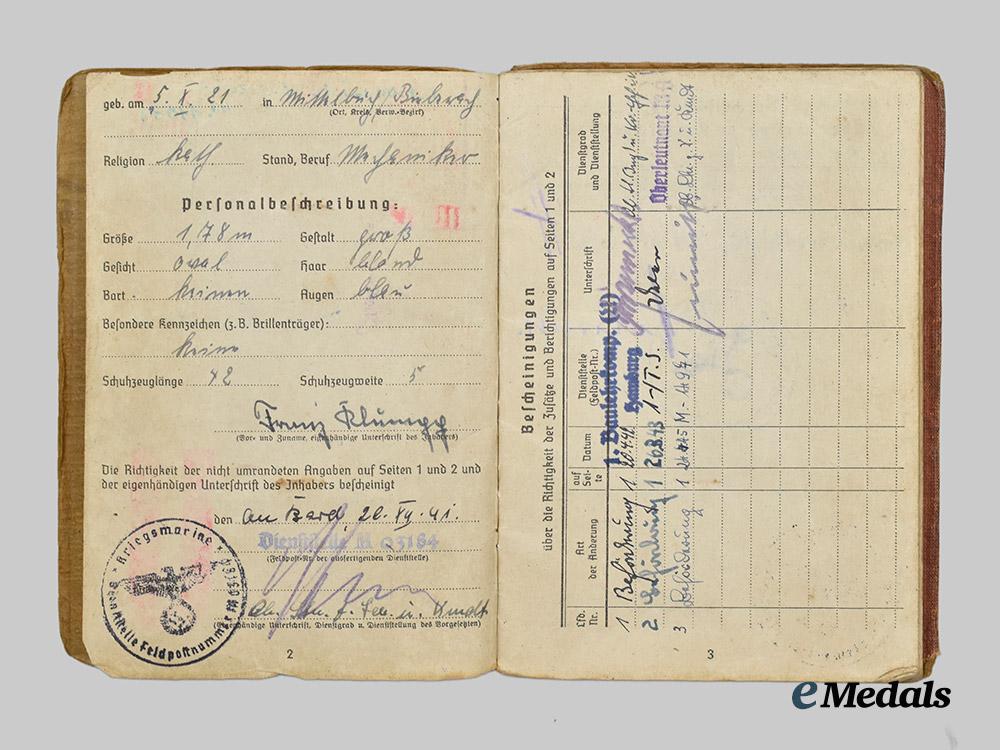 geb. am 5. X. 21 in Mittelbuch/Biberach
(Ort, Kreis, Verw.-Bezirk)
Religion kath Stand, Beruf Mechaniker
Personalbeschreibung:
Größe 1,78 m Gestalt groß
Gesicht oval Haar blond
Bart keinen Augen blau
Besondere Kennzeichen (z. B. Brillenträger):
keine
Schuhzeuglänge 42 Schuhzeugweite 5
Franz Klumpp
(Vor- und Zuname, eigenhändige Unterschrift des Inhabers)
Die Richtigkeit der nicht umrandeten Angaben auf Seiten 1 und 2 und
der eigenhändigen Unterschrift des Inhabers bescheinigt
den An Bord, 20. 41.
Dienststelle M 03184
(Feldpost-Nr. der ausfertigenden Dienststelle)
u.
(Eigenhändige Unterschrift, Dienstgrad u. Dienststellung des Vorgesetzten)
Kriegsmarine
Dienststelle Feldpostnummer M 03184
2
Bescheinigungen
über die Richtigkeit der Zusätze und Berichtigungen auf Seiten 1 und 2
Lfd. Nr.
Art der Änderung
auf Seite
Datum
Dienststelle (Feldpost-Nr.)
Unterschrift
Dienstgrad und Dienststellung
1 Beförderung 1 20.4.42 1. Baulehrkomp. (U) Hamburg
2 Beförderung 1 20.8.43 1./T.S. Oberleutnant
3 Beförderung 1 M-
3
eMedals